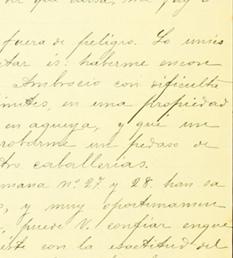 fuera de peligro. Lo unico
tar is: haberme encon
Ambrosio con dificulta
imites, en una propiedad
en aqueya, y que un
robarme un pedaso de
tro caballerias.
mana nº 27 y 28. han sa
s, y muy oportunamen
, puede V. confiar enque
éste con la esactitud del